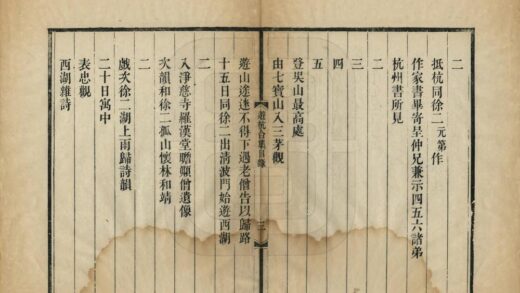 二
抵杭同徐二元第作
作家書畢寄呈仲兄兼示四五六諸弟
杭州書所見
二
三
四
五
登吳山最高處
由七寶山入三茅觀
遊杭合集目錄
三
遊山途迷不得下遇老僧告以歸路
十五日同徐二出清波門始遊西湖
二
入淨慈寺羅漢堂瞻顛僧遺像
次韻和徐二孤山懷林和靖
二
戲次徐二湖上雨歸詩韻
二十日寓中
表忠觀
西湖雜詩